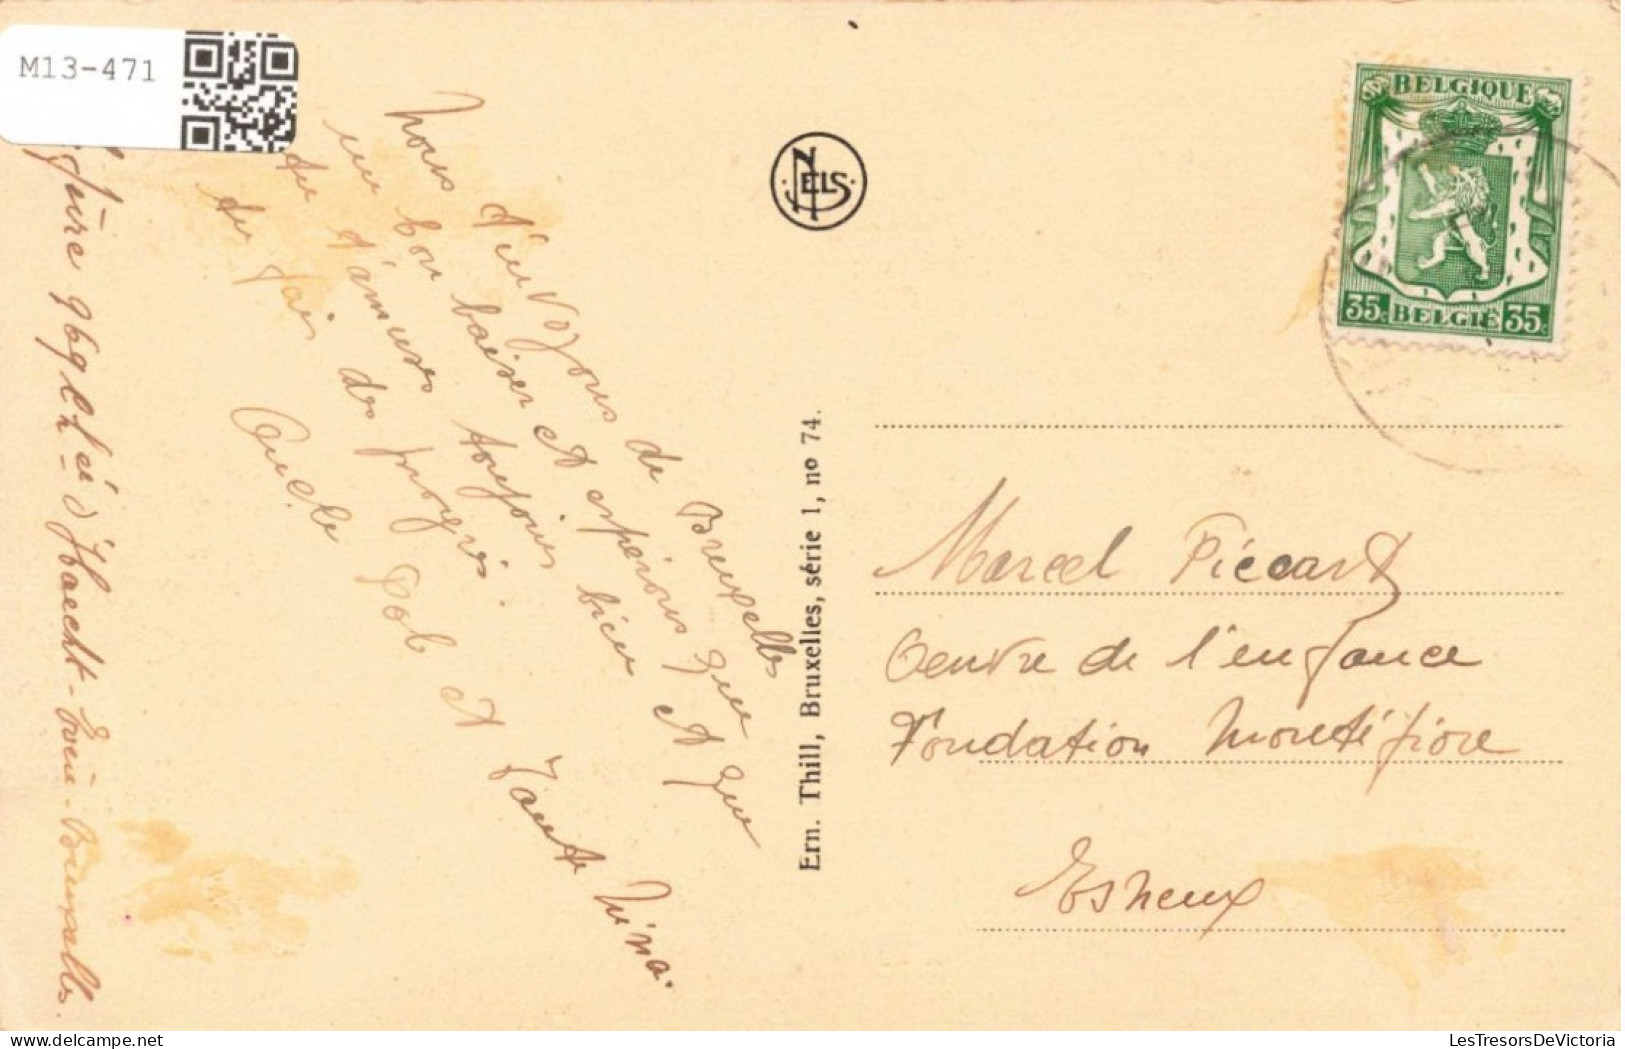 M13-471
NELS
BELGIQUE
35c BELGIË 35c
Nous t'envoyons de Bruxelles
un bon baiser et espérons que
tu t'amuses toujours bien et que
tu fais des progrès.
Oncle Bob et Tante Nina.
d'Haecht - Evere - Bruxelles.
Ern. Thill, Bruxelles, série 1, no 74.
Marcel Piccard
Oeuvre de l'enfance
Fondation Montéfiore
Esneux
LesTresorsDeVictoria